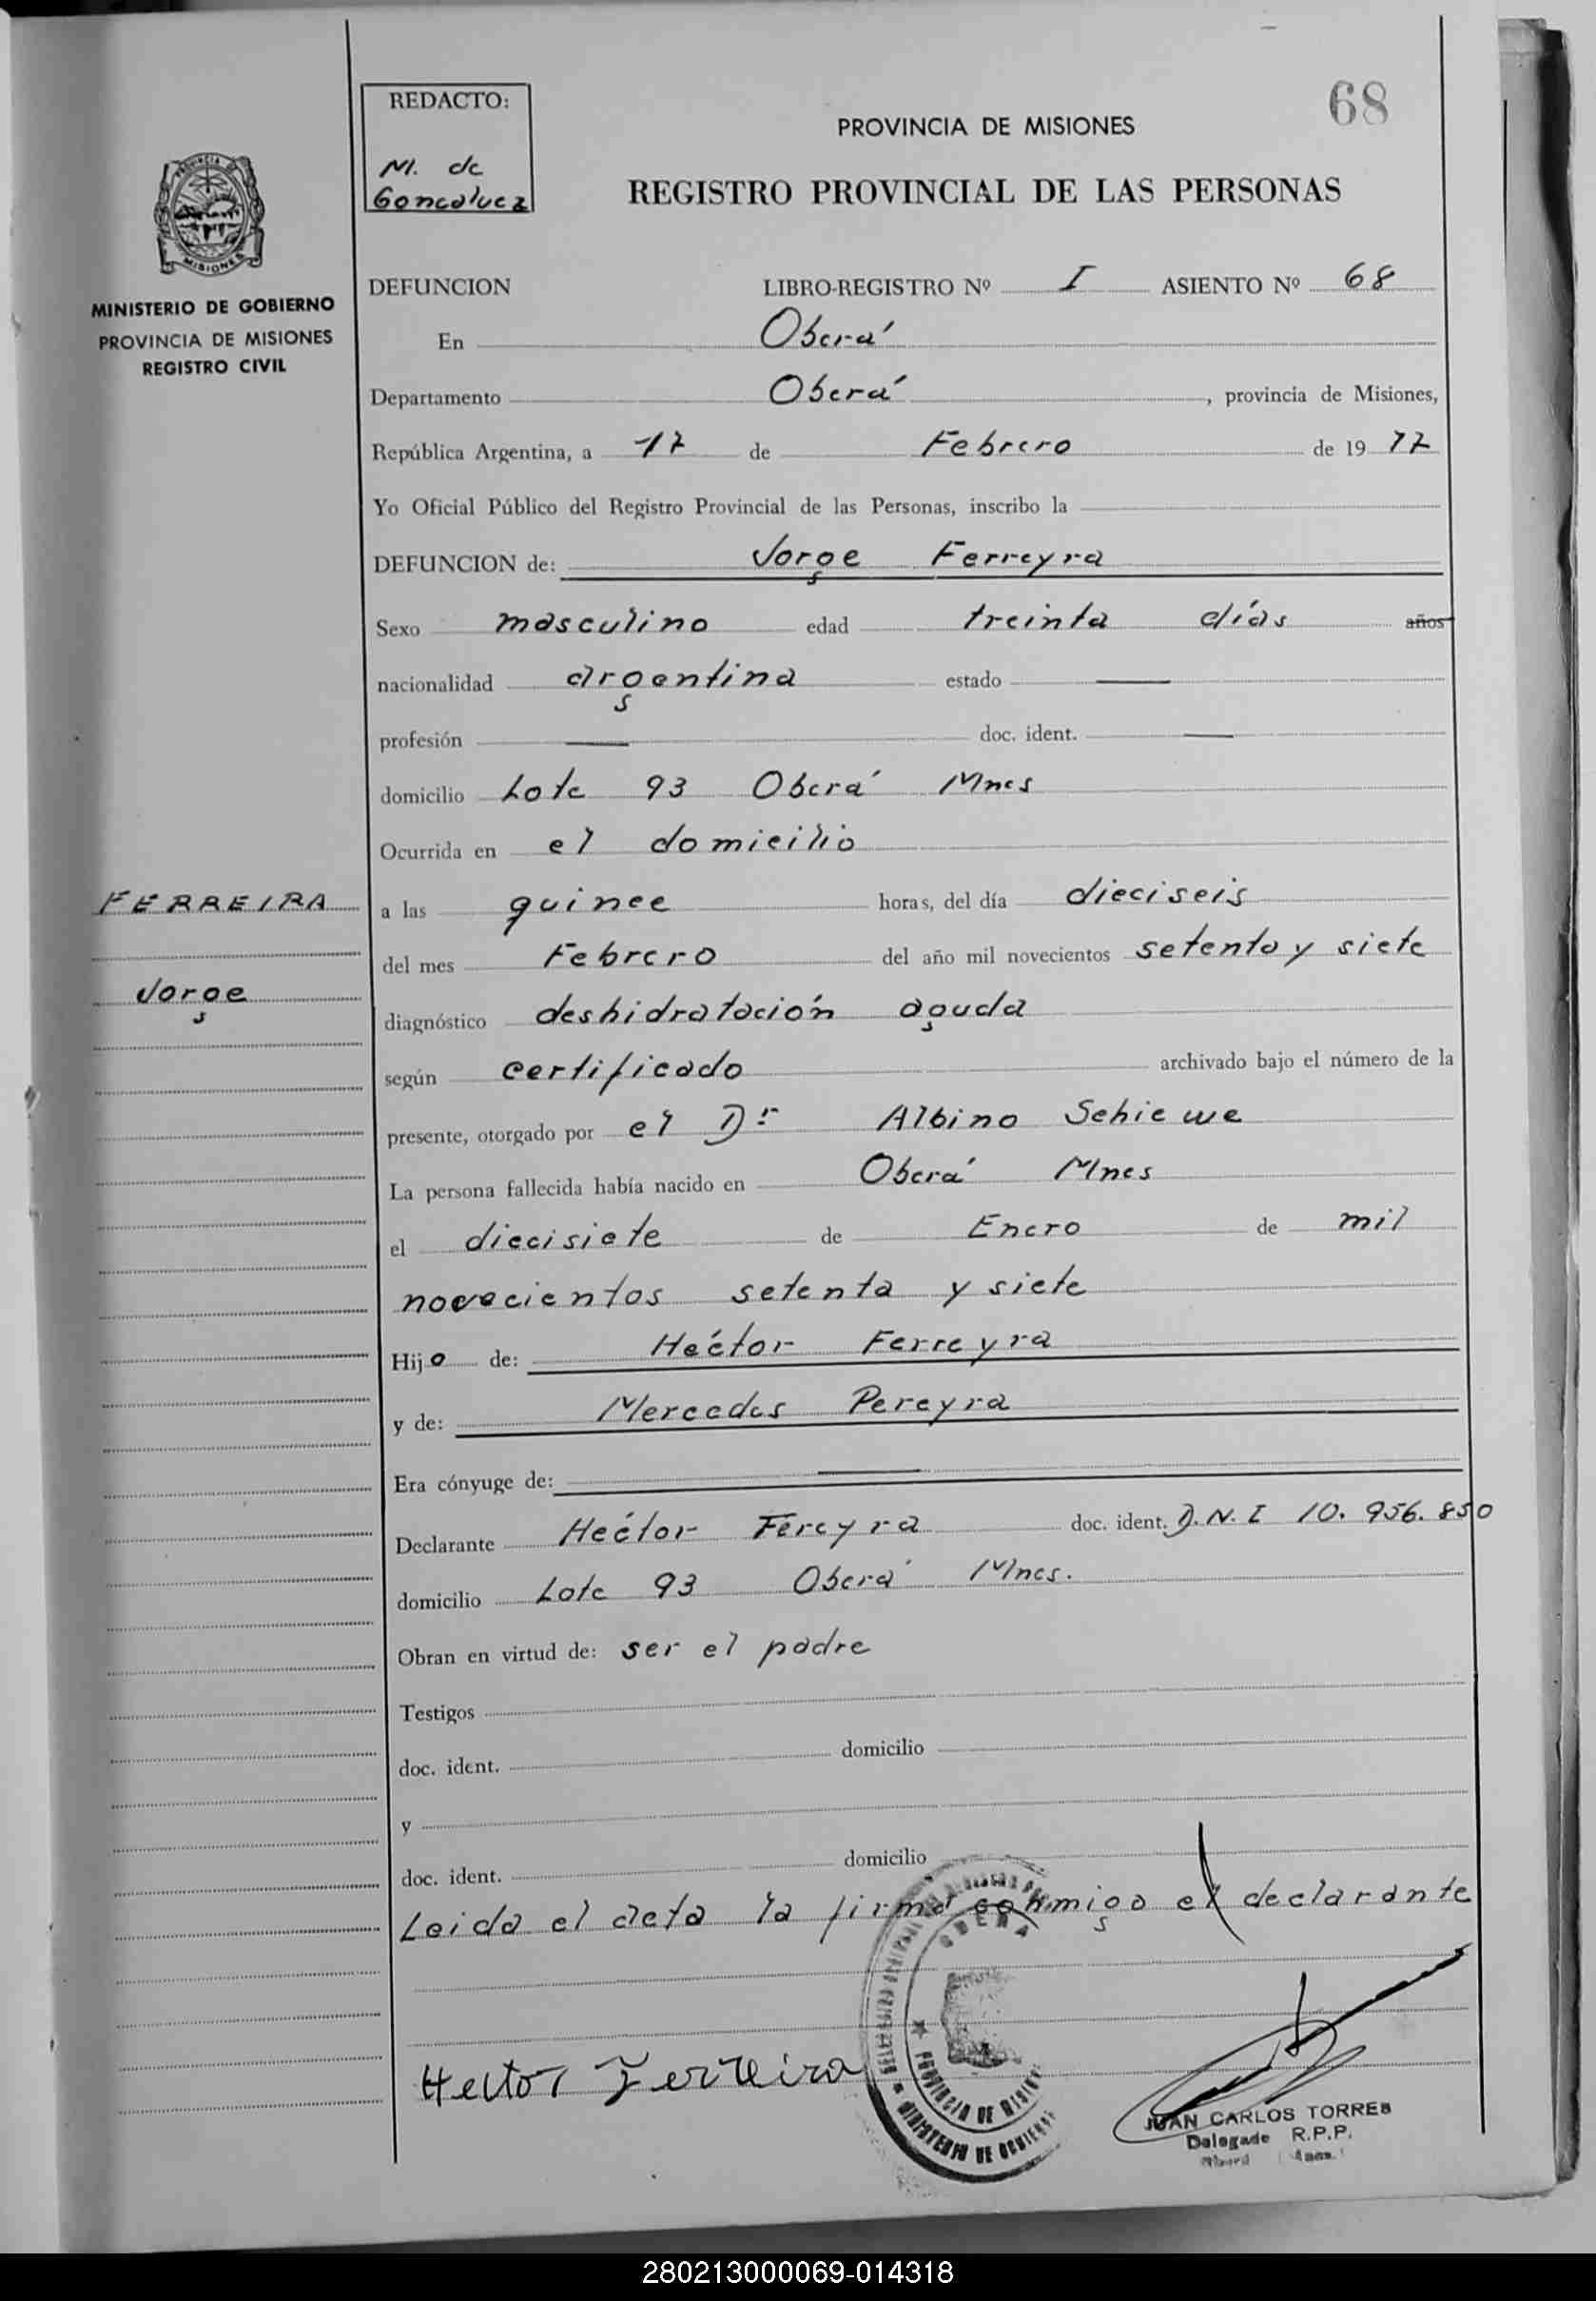 68
REDACTO:
M. de
Goncalvez
PROVINCIA DE MISIONES
REGISTRO PROVINCIAL DE LAS PERSONAS
MINISTERIO DE GOBIERNO
PROVINCIA DE MISIONES
REGISTRO CIVIL
DEFUNCION LIBRO-REGISTRO Nº I ASIENTO Nº 68
En Oberá
Departamento Oberá, provincia de Misiones,
República Argentina, a 17 de Febrero de 19 77
Yo Oficial Público del Registro Provincial de las Personas, inscribo la
DEFUNCION de: Jorge Ferreyra
Sexo masculino edad treinta días años
nacionalidad argentina estado —
profesión — doc. ident. —
domicilio Lote 93 Oberá Mnes
Ocurrida en el domicilio
FERREIRA
Jorge
a las quince horas, del día dieciseis
del mes Febrero del año mil novecientos setenta y siete
diagnóstico deshidratación aguda
según certificado archivado bajo el número de la
presente, otorgado por el Dr Albino Schiewe
La persona fallecida había nacido en Oberá Mnes
el diecisiete de Enero de mil
novecientos setenta y siete
Hijo de: Héctor Ferreyra
y de: Mercedes Pereyra
Era cónyuge de: —
Declarante Héctor Fereyra doc. ident. D.N.I 10.956.850
domicilio Lote 93 Oberá Mnes.
Obran en virtud de: ser el padre
Testigos
doc. ident. domicilio
y
doc. ident. domicilio
Leida el acta la firma conmigo el declarante
Hector Ferreira
OBERA
PROVINCIA DE MISIONES
MINISTERIO DE GOBIERNO
JUAN CARLOS TORRES
Delegado R.P.P.
280213000069-014318